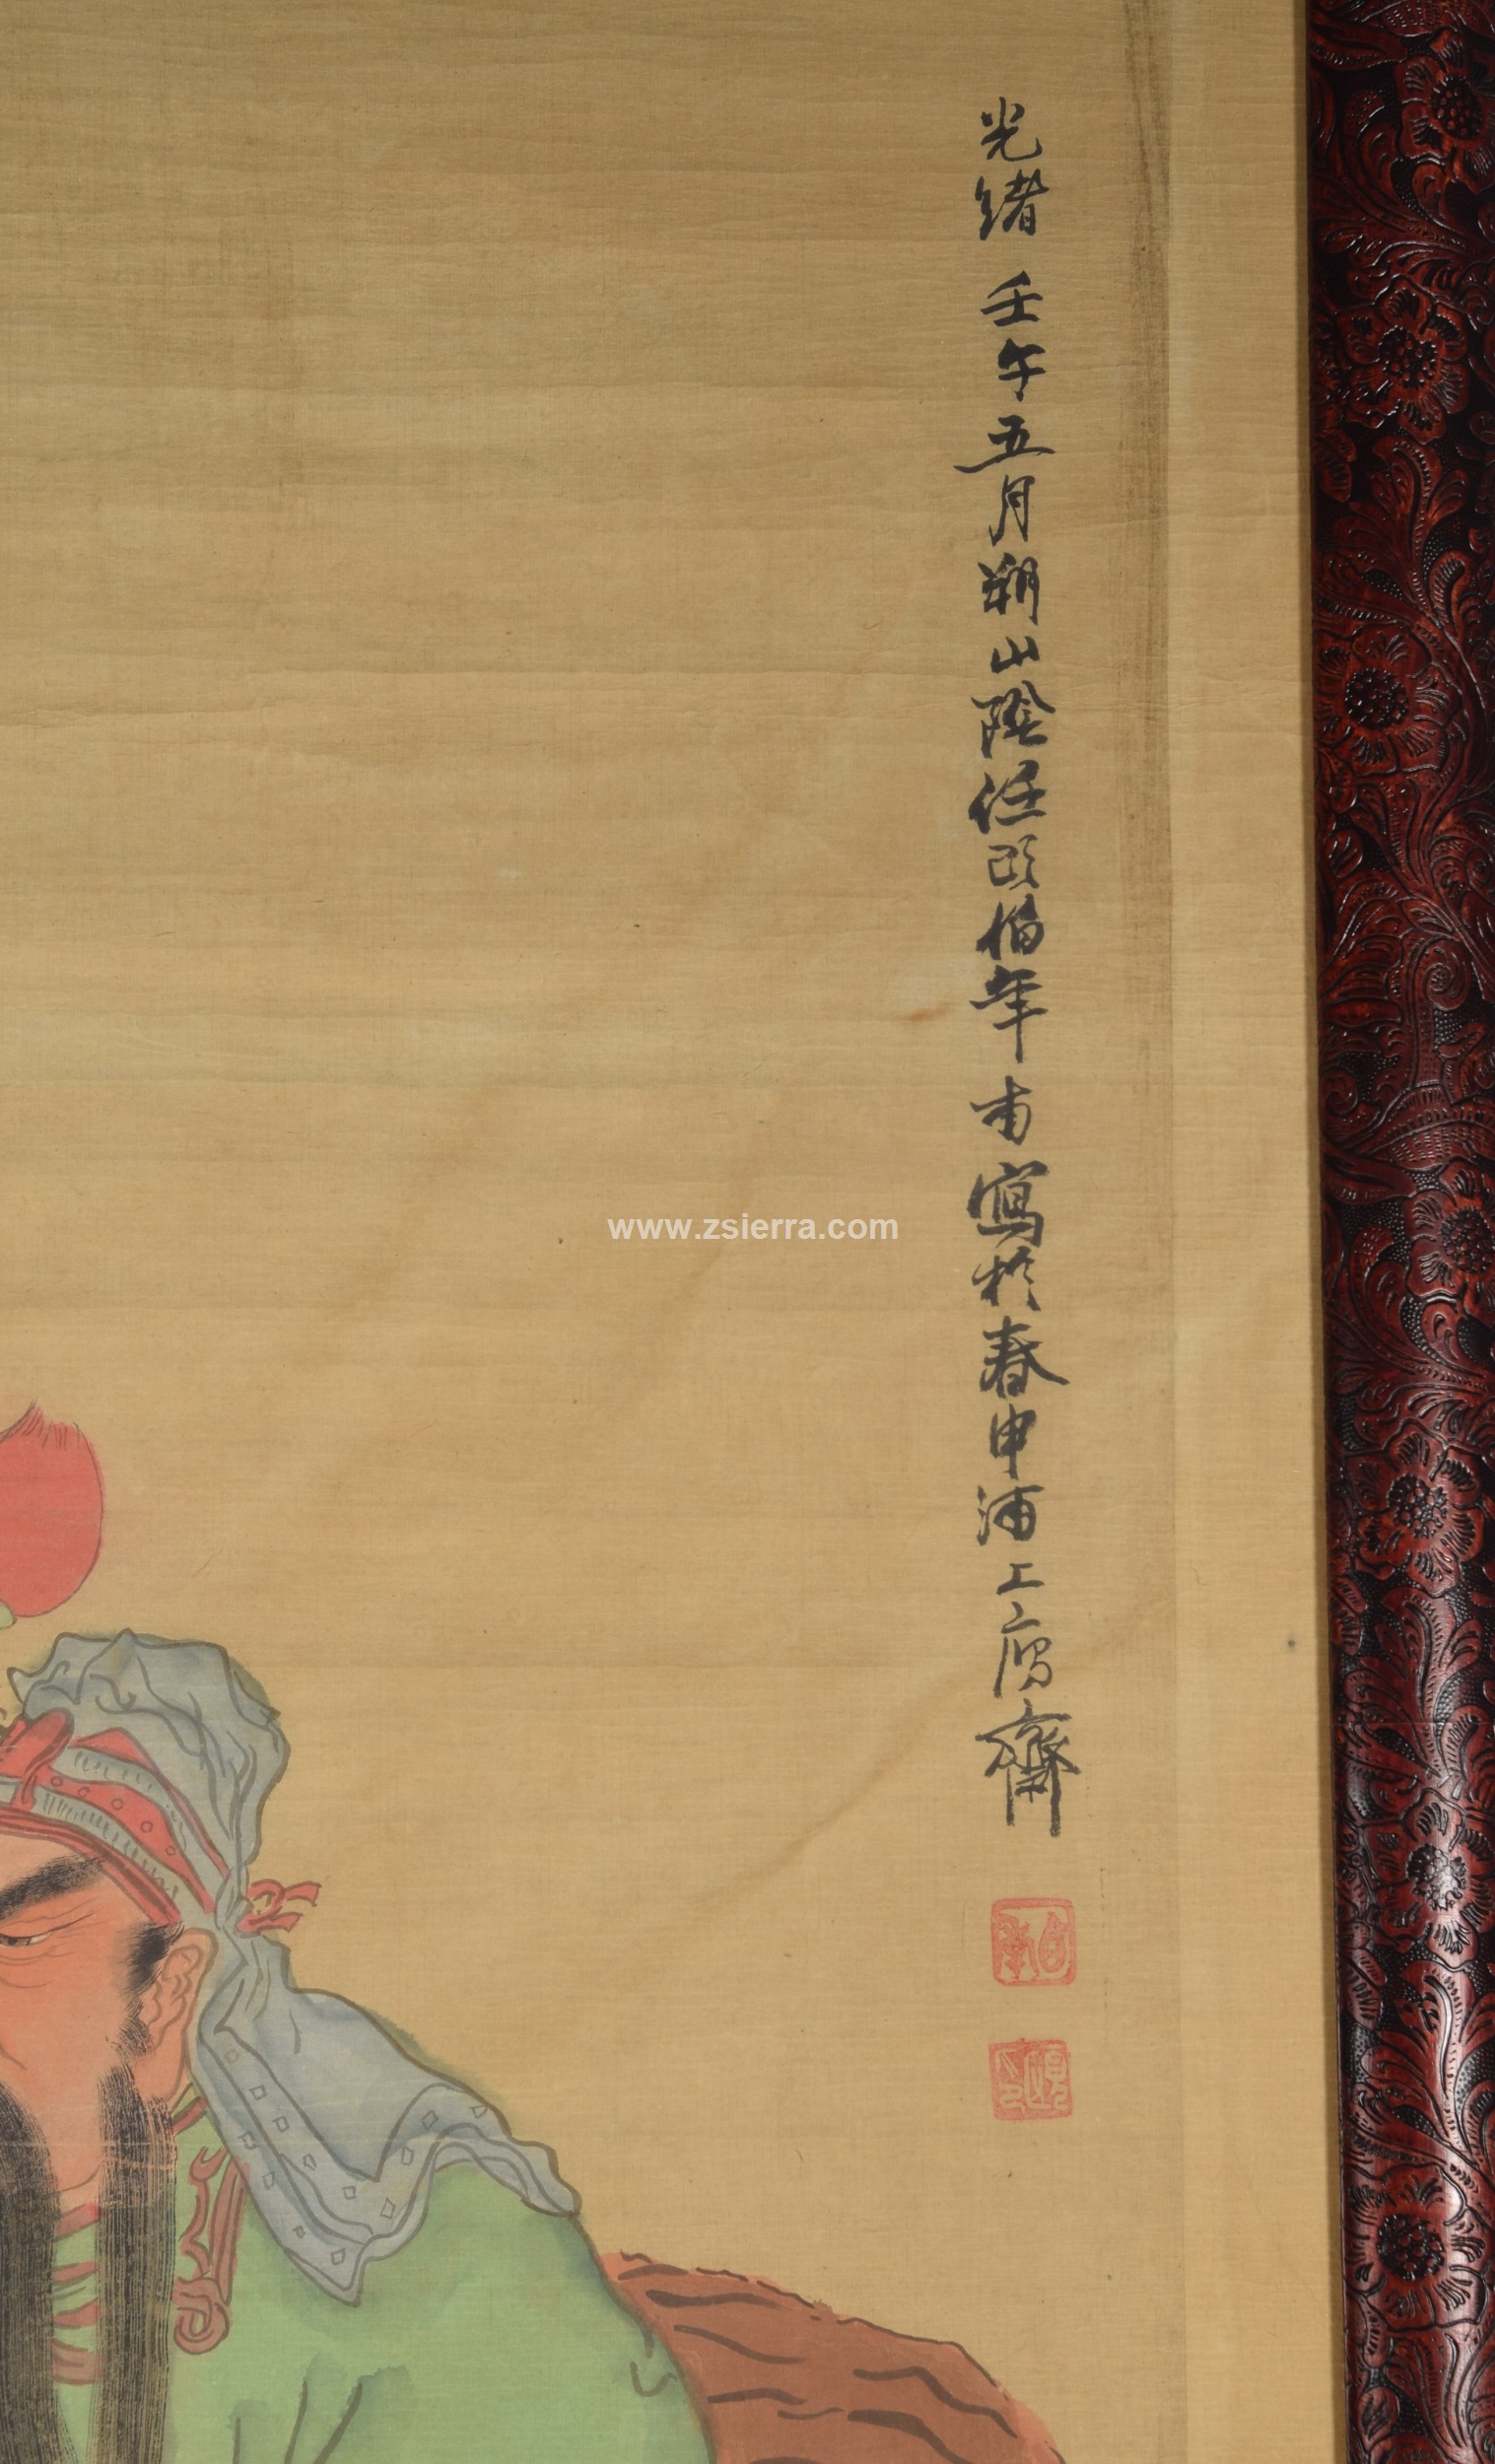 光緒壬午五月朔山陰任頤伯年甫寫於春申浦上庽齋
伯年
頤印
www.zsierra.com